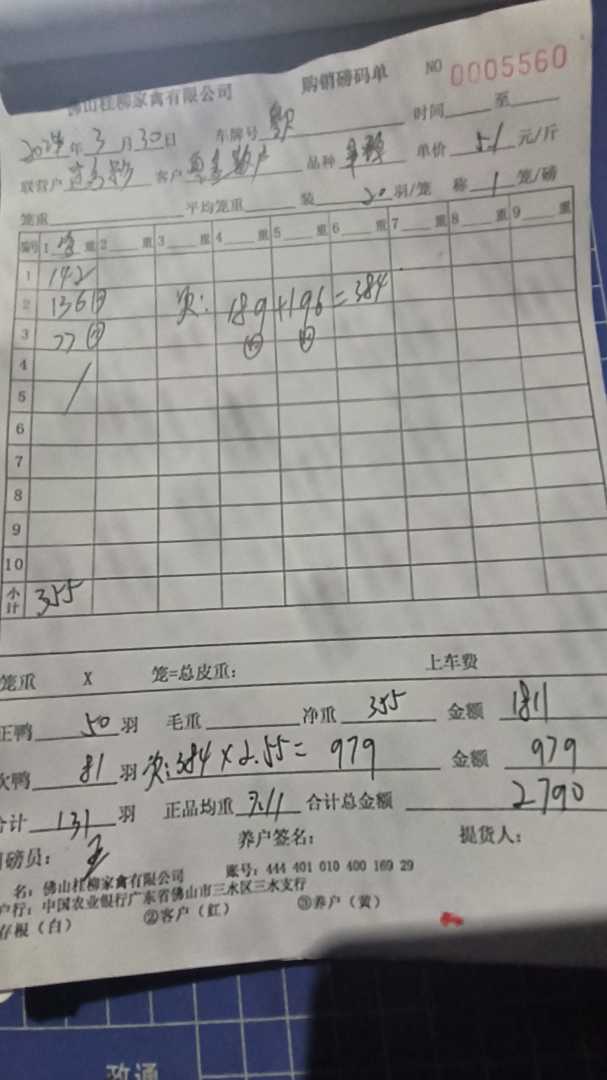 佛山桂柳家禽有限公司 购销磅码单 NO 0005560
年 3 月 30 日 车牌号 粤 时间 至
联营户 客户 品种 单价 5.1 元/斤
笼重 平均笼重 装 20 羽/笼 称 1 笼/磅
编号 1 重 2 重 3 重 4 重 5 重 6 重 7 重 8 重 9 重
1 142
2 136 次: 189+196=384
3 77
4
5
6
7
8
9
10
小计 355
笼重 X 笼=总皮重: 上车费
正鸭 50 羽 毛重 净重 355 金额 1811
次鸭 81 羽 次:384×2.55=979 金额 979
合计 131 羽 正品均重 7.11 合计总金额 2790
司磅员: 养户签名: 提货人:
名: 佛山桂柳家禽有限公司 账号: 444 401 010 400 169 29
户行: 中国农业银行广东省佛山市三水区三水支行
存根(白) ②客户(红) ③养户(黄)
政通